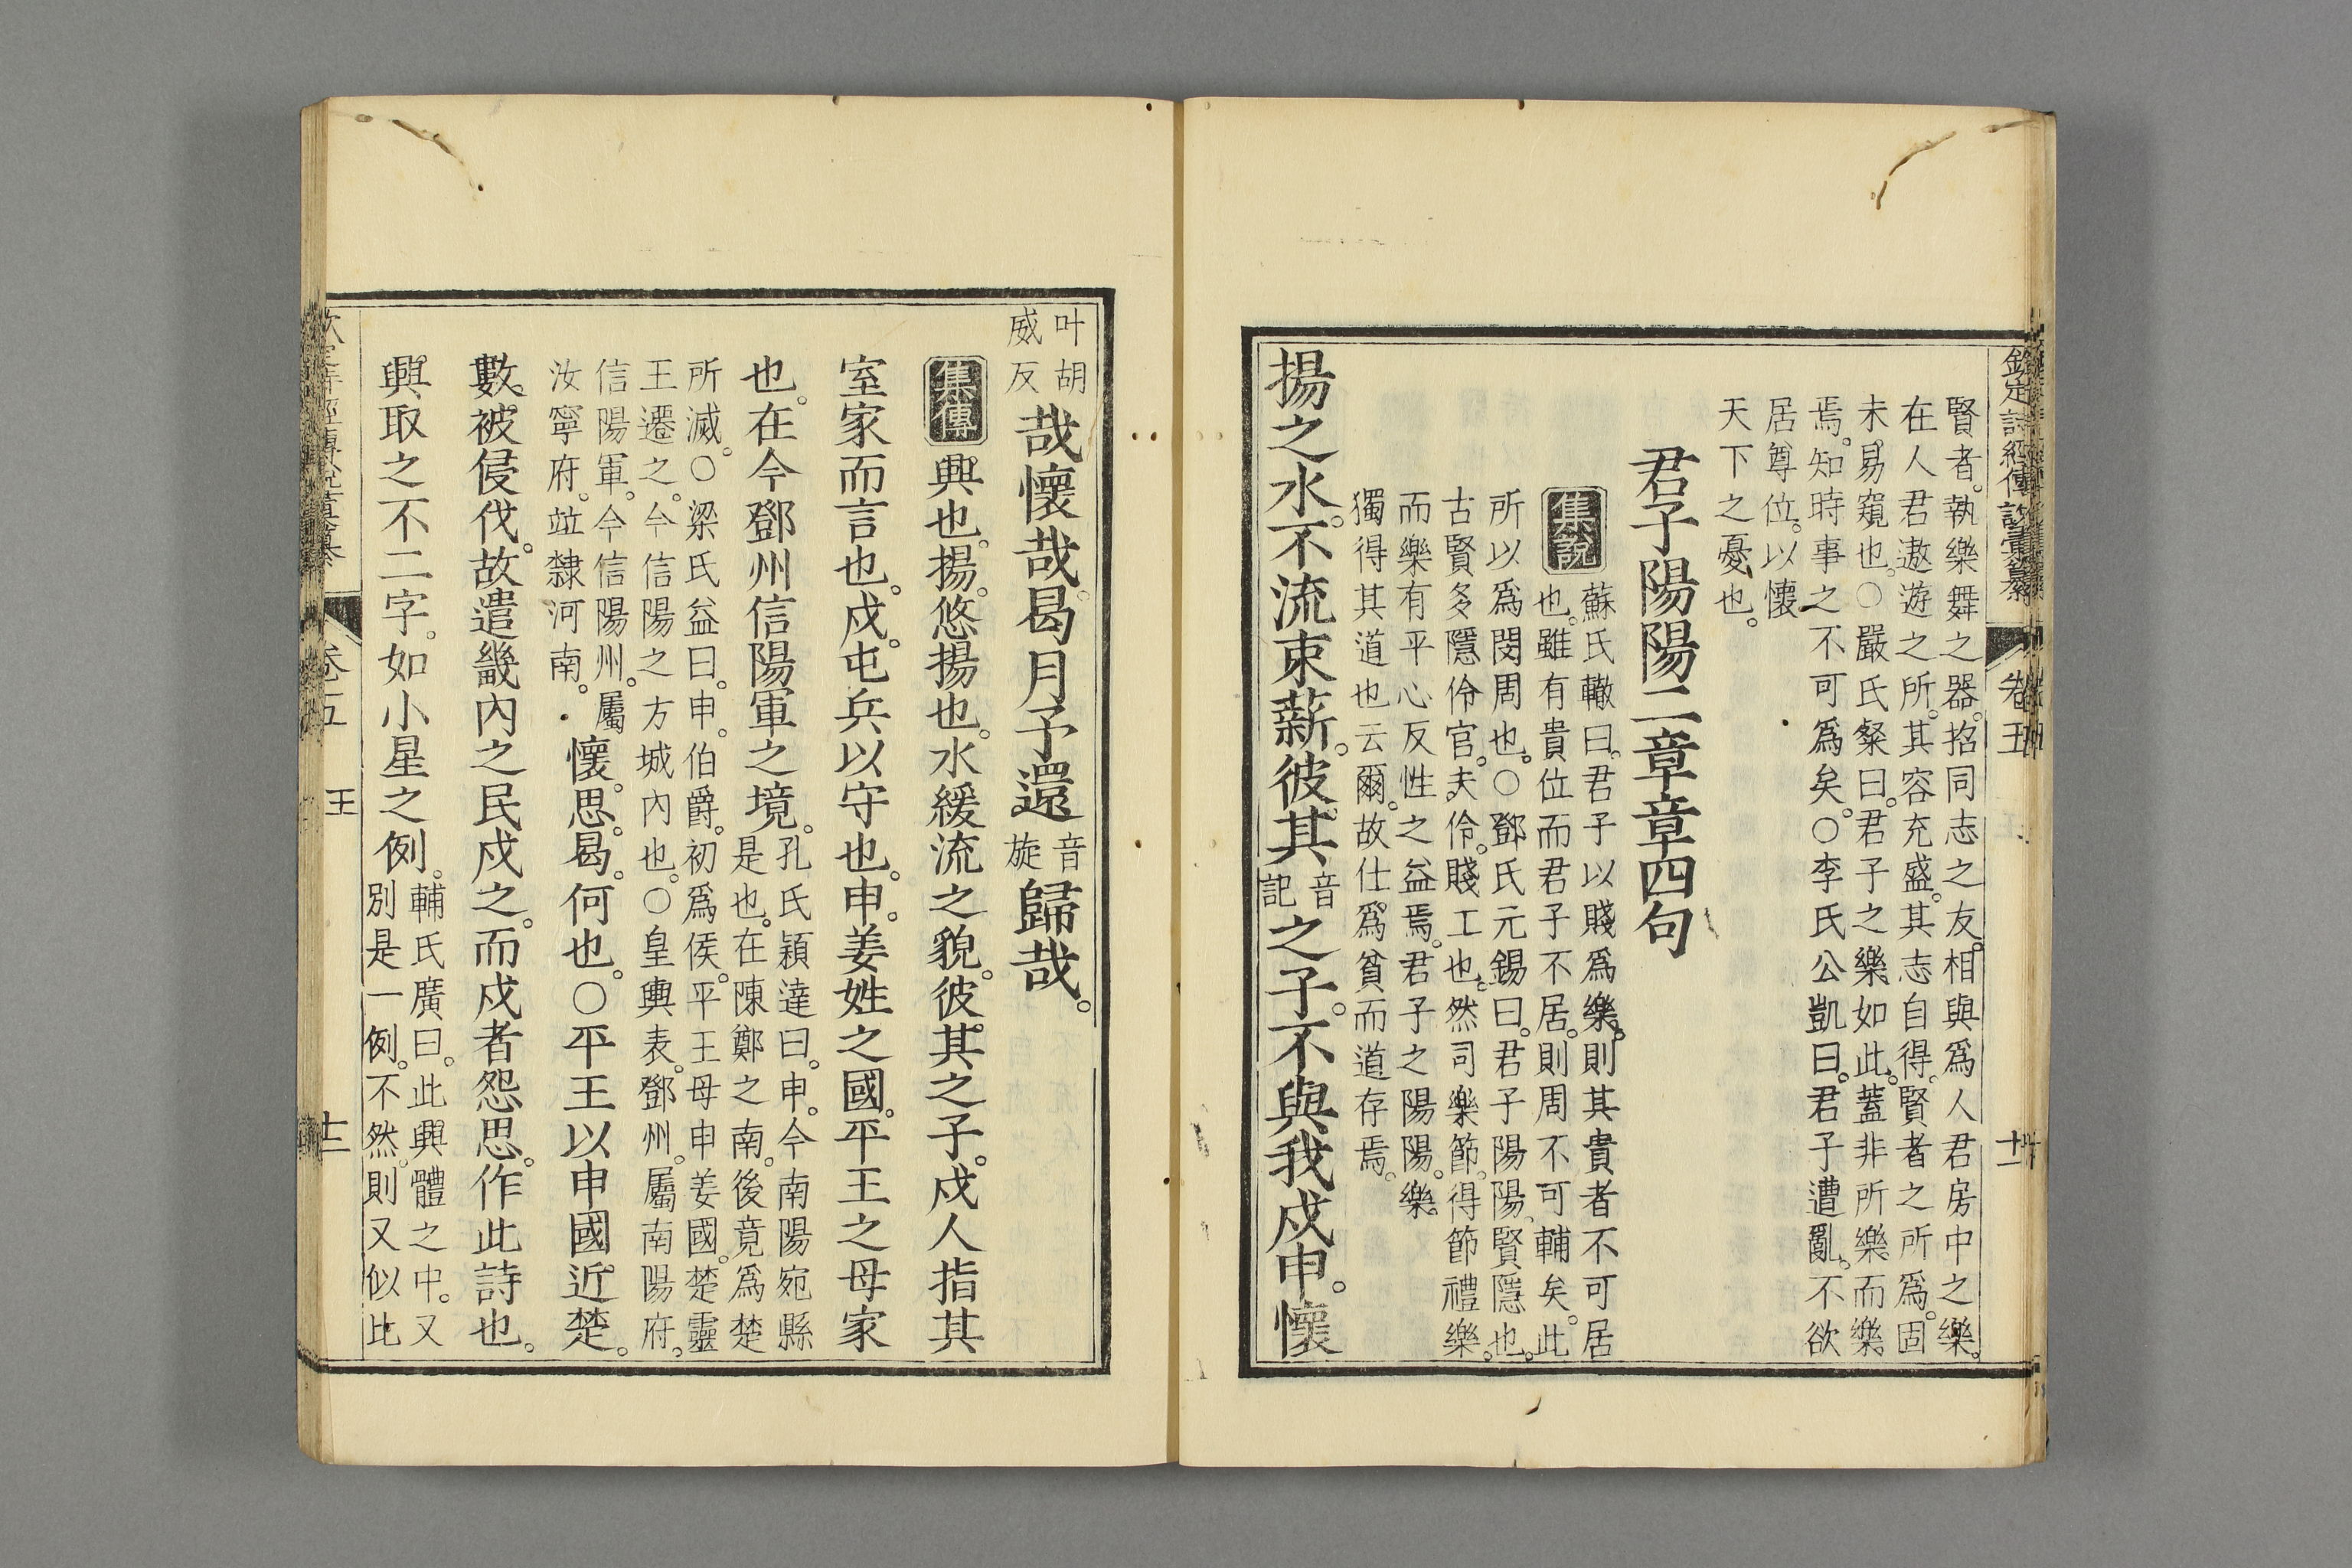 欽定詩經傳說彙纂 卷五 十一
賢者。執樂舞之器。招同志之友。相與爲人君房中之樂。
在人君遨遊之所。其容充盛。其志自得。賢者之所爲。固
未易窺也。○嚴氏粲曰。君子之樂如此。蓋非所樂而樂
焉。知時事之不可爲矣。○李氏公凱曰。君子遭亂。不欲
居尊位。以懷
天下之憂也。
君子陽陽二章章四句
集說
蘇氏轍曰。君子以賤爲樂。則其貴者不可居
也。雖有貴位而君子不居。則周不可輔矣。此
所以爲閔周也。○鄧氏元錫曰。君子陽陽。賢隱也。
古賢多隱伶官。夫伶。賤工也。然司樂節。得節禮樂。
而樂有平心反性之益焉。君子之陽陽。樂。
獨得其道也云爾。故仕爲貧而道存焉。
揚之水。不流束薪。彼其音記之子。不與我戍申。懷
叶胡威反哉懷哉。曷月予還音旋歸哉。
集傳 興也。揚。悠揚也。水緩流之貌。彼其之子。戍人指其
室家而言也。戍。屯兵以守也。申。姜姓之國。平王之母家
也。在今鄧州信陽軍之境。孔氏穎達曰。申。今南陽宛縣
是也。在陳鄭之南。後竟爲楚
所滅。○梁氏益曰。申。伯爵。初爲侯。平王母申姜國。楚靈
王遷之。今信陽之方城內也。○皇輿表。鄧州。屬南陽府。
信陽軍。今信陽州。屬
汝寧府。竝隸河南。懷。思。曷。何也。○平王以申國近楚。
數被侵伐。故遣畿內之民戍之。而戍者怨思。作此詩也。
興取之不二字。如小星之例。輔氏廣曰。此興體之中。又
別是一例。不然。則又似比
卷五 王 十二